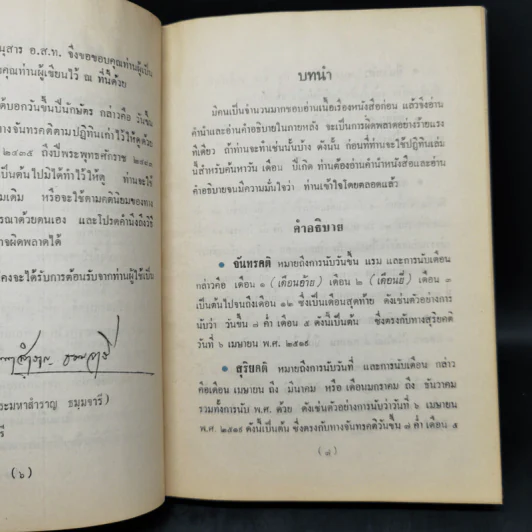 นุสาร อ.ส.ท. ซึ่งขอขอบคุณท่านผู้เป็น
คุณท่านผู้เขียนไว้ ณ ที่นี้ด้วย
ด้บอกวันขึ้นปีนักษัตร กล่าวคือ วันขึ้น
างจันทรคติตามปฏิทินเก่าไว้ให้ดูด้วย
๒๔๓๕ ถึงปีพระพุทธศักราช
เป็นต้นไปมิได้ทำไว้ให้ดู ท่านจะใช้
มเดิม หรือจะใช้ตามคตินิยมของทาง
รณาด้วยตนเอง และโปรดคำนึงถึงวิธี
าจผิดพลาดได้
คงจะได้รับการต้อนรับจากท่านผู้ใช้เป็น
ระมหาสำราญ ธมฺมจารี)
รี
(๖)
บทนำ
มีคนเป็นจำนวนมากชอบอ่านเนื้อเรื่องหนังสือก่อน แล้วจึงอ่าน
คำนำและอ่านคำอธิบายในภายหลัง จะเป็นการผิดพลาดอย่างร้ายแรง
ทีเดียว ถ้าท่านจะทำเช่นนั้นบ้าง ดังนั้น ก่อนที่ท่านจะใช้ปฏิทินเล่ม
นี้สำหรับค้นหาวัน เดือน ปีเกิด ท่านต้องอ่านคำนำหนังสือและอ่าน
คำอธิบายจนมีความมั่นใจว่า ท่านเข้าใจโดยตลอดแล้ว
คำอธิบาย
● จันทรคติ หมายถึงการนับวันขึ้น แรม และการนับเดือน
กล่าวคือ เดือน ๑ (เดือนอ้าย) เดือน ๒ (เดือนยี่) เดือน ๓
เป็นต้นไปจนถึงเดือน ๑๒ ซึ่งเป็นเดือนสุดท้าย ดังเช่นตัวอย่างการ
นับว่า วันขึ้น ๗ ค่ำ เดือน ๕ ดังนี้เป็นต้น ซึ่งตรงกับทางสุริยคติ
วันที่ ๖ เมษายน พ.ศ. ๒๕๑๙
● สุริยคติ หมายถึงการนับวันที่ และการนับเดือน กล่าว
คือเดือน เมษายน ถึง มีนาคม หรือ เดือนมกราคม ถึง ธันวาคม
รวมทั้งการนับ พ.ศ. ด้วย ดังเช่นตัวอย่างการนับว่าวันที่ ๖ เมษายน
พ.ศ. ๒๕๑๙ ดังนี้เป็นต้น ซึ่งตรงกับทางจันทรคติวันขึ้น ๗ ค่ำ เดือน ๕
(๗)